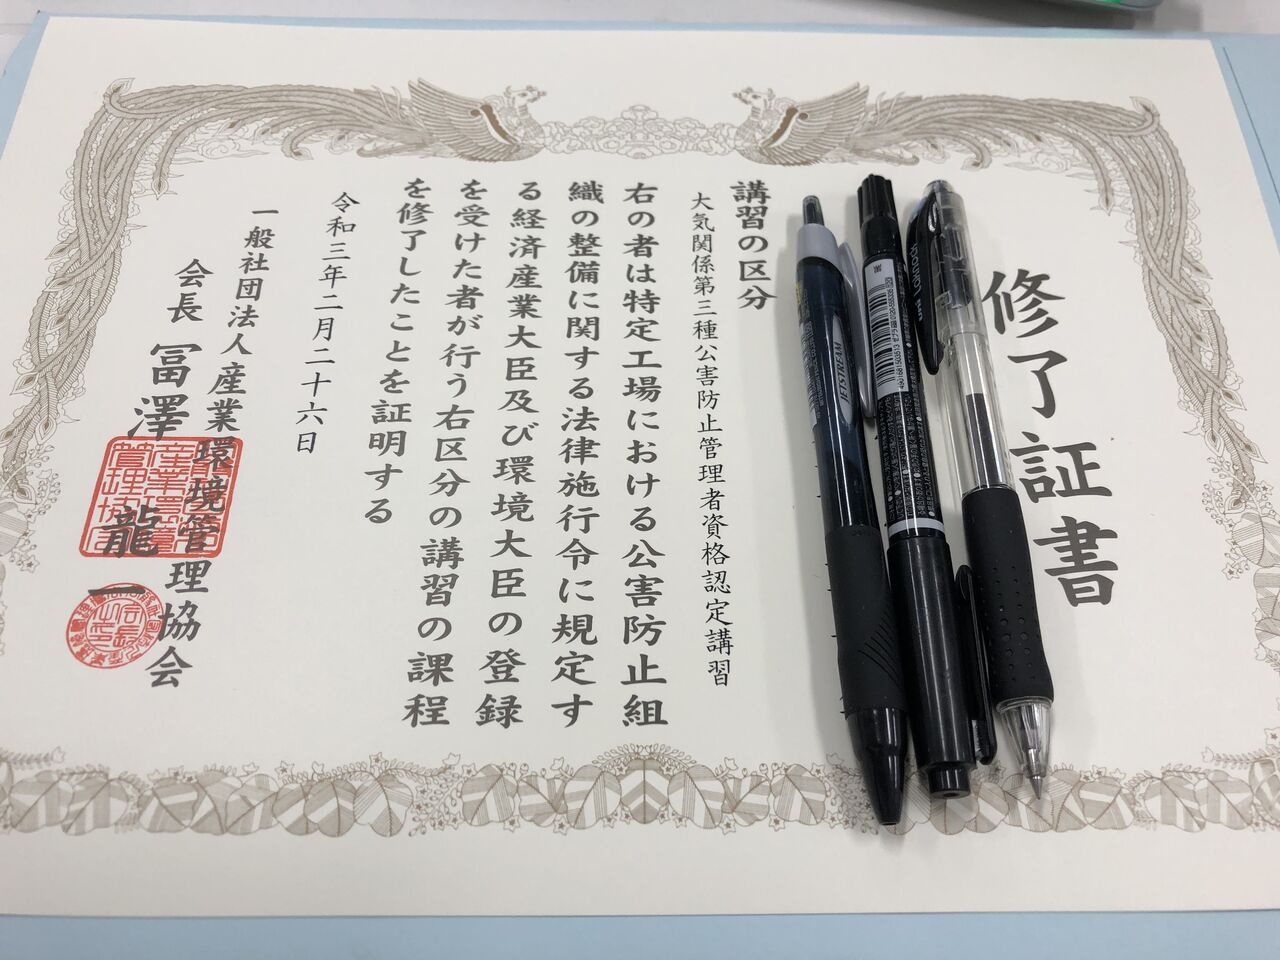 修了証書
講習の区分
大気関係第三種公害防止管理者資格認定講習
右の者は特定工場における公害防止組
織の整備に関する法律施行令に規定す
る経済産業大臣及び環境大臣の登録
を受けた者が行う右区分の講習の課程
を修了したことを証明する
令和三年二月二十六日
一般社団法人産業環境管理協会
会長 冨澤龍一
JETSTREAM
uni Laknock